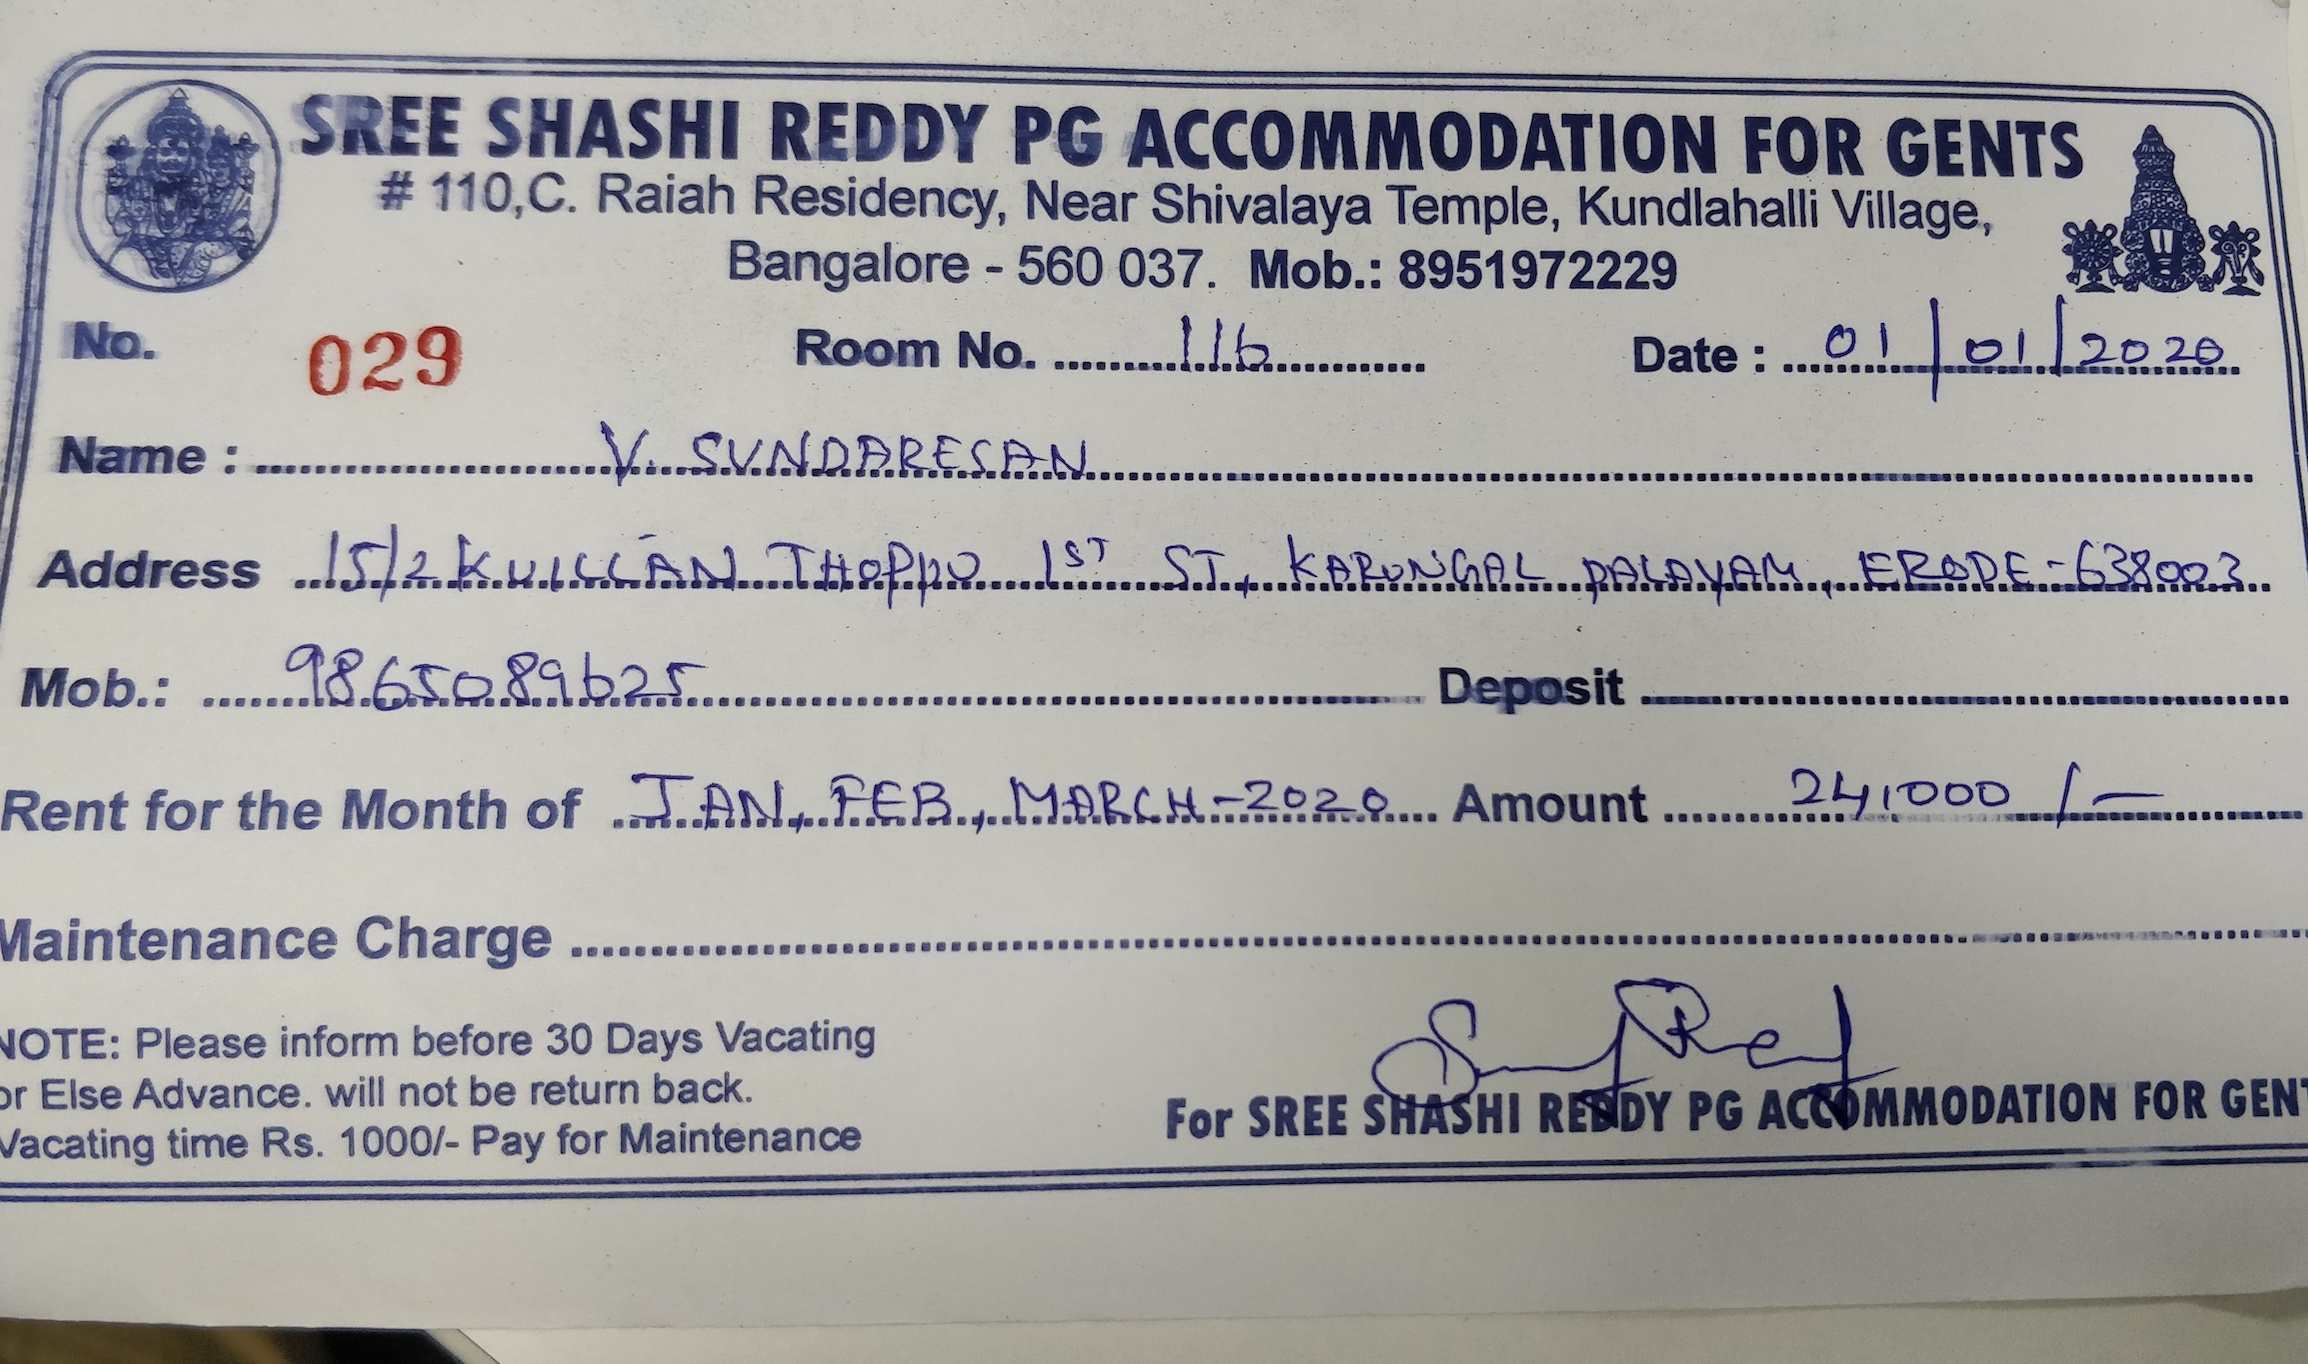 SREE SHASHI REDDY PG ACCOMMODATION FOR GENTS
# 110,C. Raiah Residency, Near Shivalaya Temple, Kundlahalli Village,
Bangalore - 560 037. Mob.: 8951972229
No. 029 Room No. 116 Date : 01/01/2020
Name : V. SUNDARESAN
Address 15/2 KUILLAN THOPPU 1ST ST, KARUNGAL PALAYAM, ERODE-638003
Mob.: 9865089625 Deposit
Rent for the Month of JAN, FEB, MARCH-2020 Amount 24,000/-
Maintenance Charge
NOTE: Please inform before 30 Days Vacating
or Else Advance. will not be return back.
Vacating time Rs. 1000/- Pay for Maintenance
For SREE SHASHI REDDY PG ACCOMMODATION FOR GENT